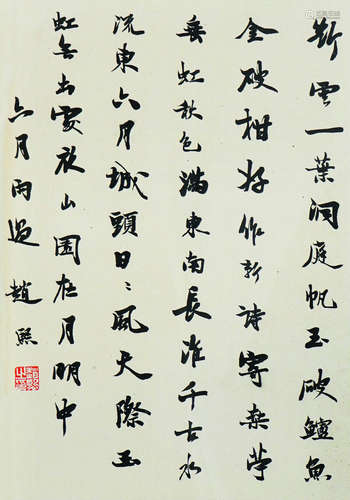 斷雲一葉洞庭帆玉破鱸魚
金破柑好作新詩寄桑苧
垂虹秋色滿東南長淮千古水
流東六月城頭日〻風天際玉
虹無出處放山園在月明中
六月雨過 趙熙